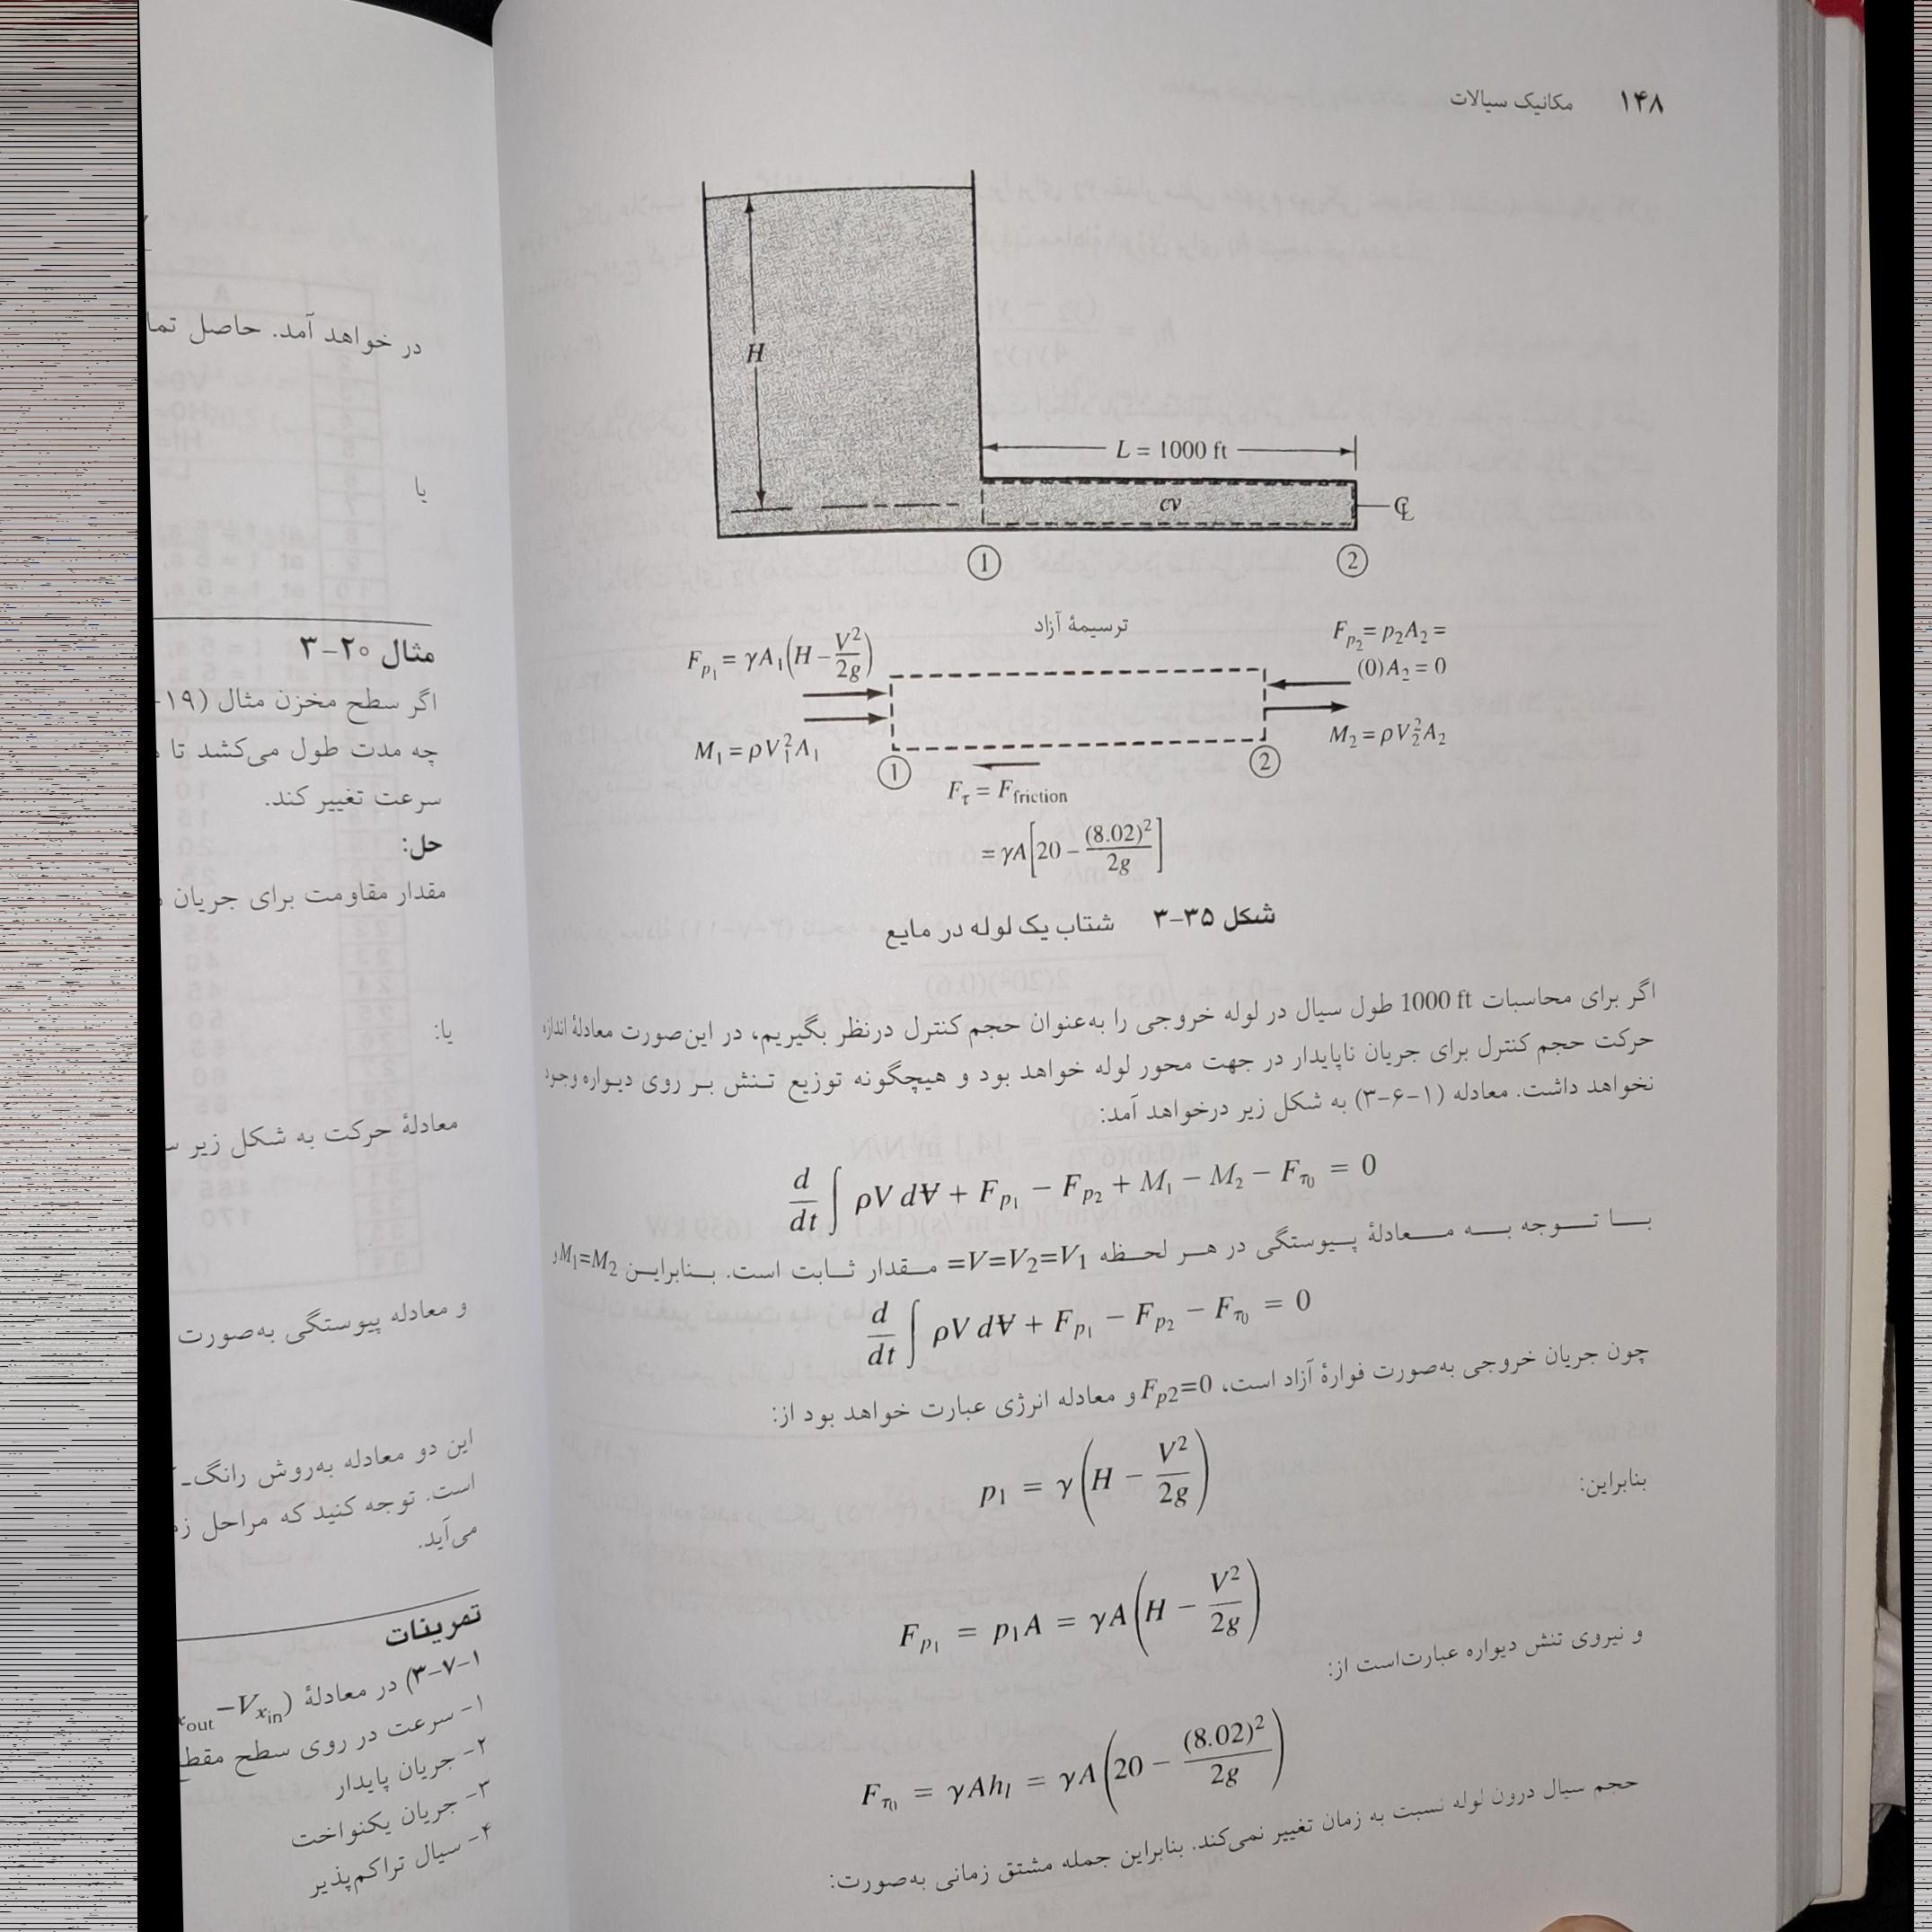 ۱۴۸ مکانیک سیالات
H
L = 1000 ft
cv
℄
1
2
ترسیمهٔ آزاد
F_{p_1} = γA_1(H − V^2/2g)
F_{p_2} = p_2A_2 =
(0)A_2 = 0
M_1 = ρV_1^2A_1
M_2 = ρV_2^2A_2
1
2
F_τ = F_{friction}
= γA[20 − (8.02)^2/2g]
شکل ۳۵–۳ شتاب یک لوله در مایع
اگر برای محاسبات 1000 ft طول سیال در لوله خروجی را به‌عنوان حجم کنترل درنظر بگیریم، در این‌صورت معادلهٔ اندازه
حرکت حجم کنترل برای جریان ناپایدار در جهت محور لوله خواهد بود و هیچگونه توزیع تنش بر روی دیواره وجود
نخواهد داشت. معادله (۱–۶–۳) به شکل زیر درخواهد آمد:
d/dt ∫ ρV dV + F_{p_1} − F_{p_2} + M_1 − M_2 − F_{τ_0} = 0
با توجه به معادلهٔ پیوستگی در هر لحظه V=V_2=V_1= مقدار ثابت است. بنابراین M_1=M_2 و
d/dt ∫ ρV dV + F_{p_1} − F_{p_2} − F_{τ_0} = 0
چون جریان خروجی به‌صورت فوارهٔ آزاد است، F_{p2}=0 و معادله انرژی عبارت خواهد بود از:
p_1 = γ(H − V^2/2g)
بنابراین:
F_{p_1} = p_1A = γA(H − V^2/2g)
و نیروی تنش دیواره عبارت‌است از:
F_{τ_0} = γAh_l = γA(20 − (8.02)^2/2g)
حجم سیال درون لوله نسبت به زمان تغییر نمی‌کند. بنابراین جمله مشتق زمانی به‌صورت:
در خواهد آمد. حاصل
یا
مثال ۲۰–۳
اگر سطح مخزن مثال (۱۹-
چه مدت طول می‌کشد تا
سرعت تغییر کند.
حل:
مقدار مقاومت برای جریان
یا:
معادلهٔ حرکت به شکل زیر
و معادله پیوستگی به‌صورت
این دو معادله به‌روش رانگ-
است. توجه کنید که مراحل
می‌آید.
تمرینات
۱–۷–۳) در معادلهٔ (x_{out} − V_{x_{in}})
۱- سرعت در روی سطح مقطع
۲- جریان پایدار
۳- جریان یکنواخت
۴- سیال تراکم‌پذیر